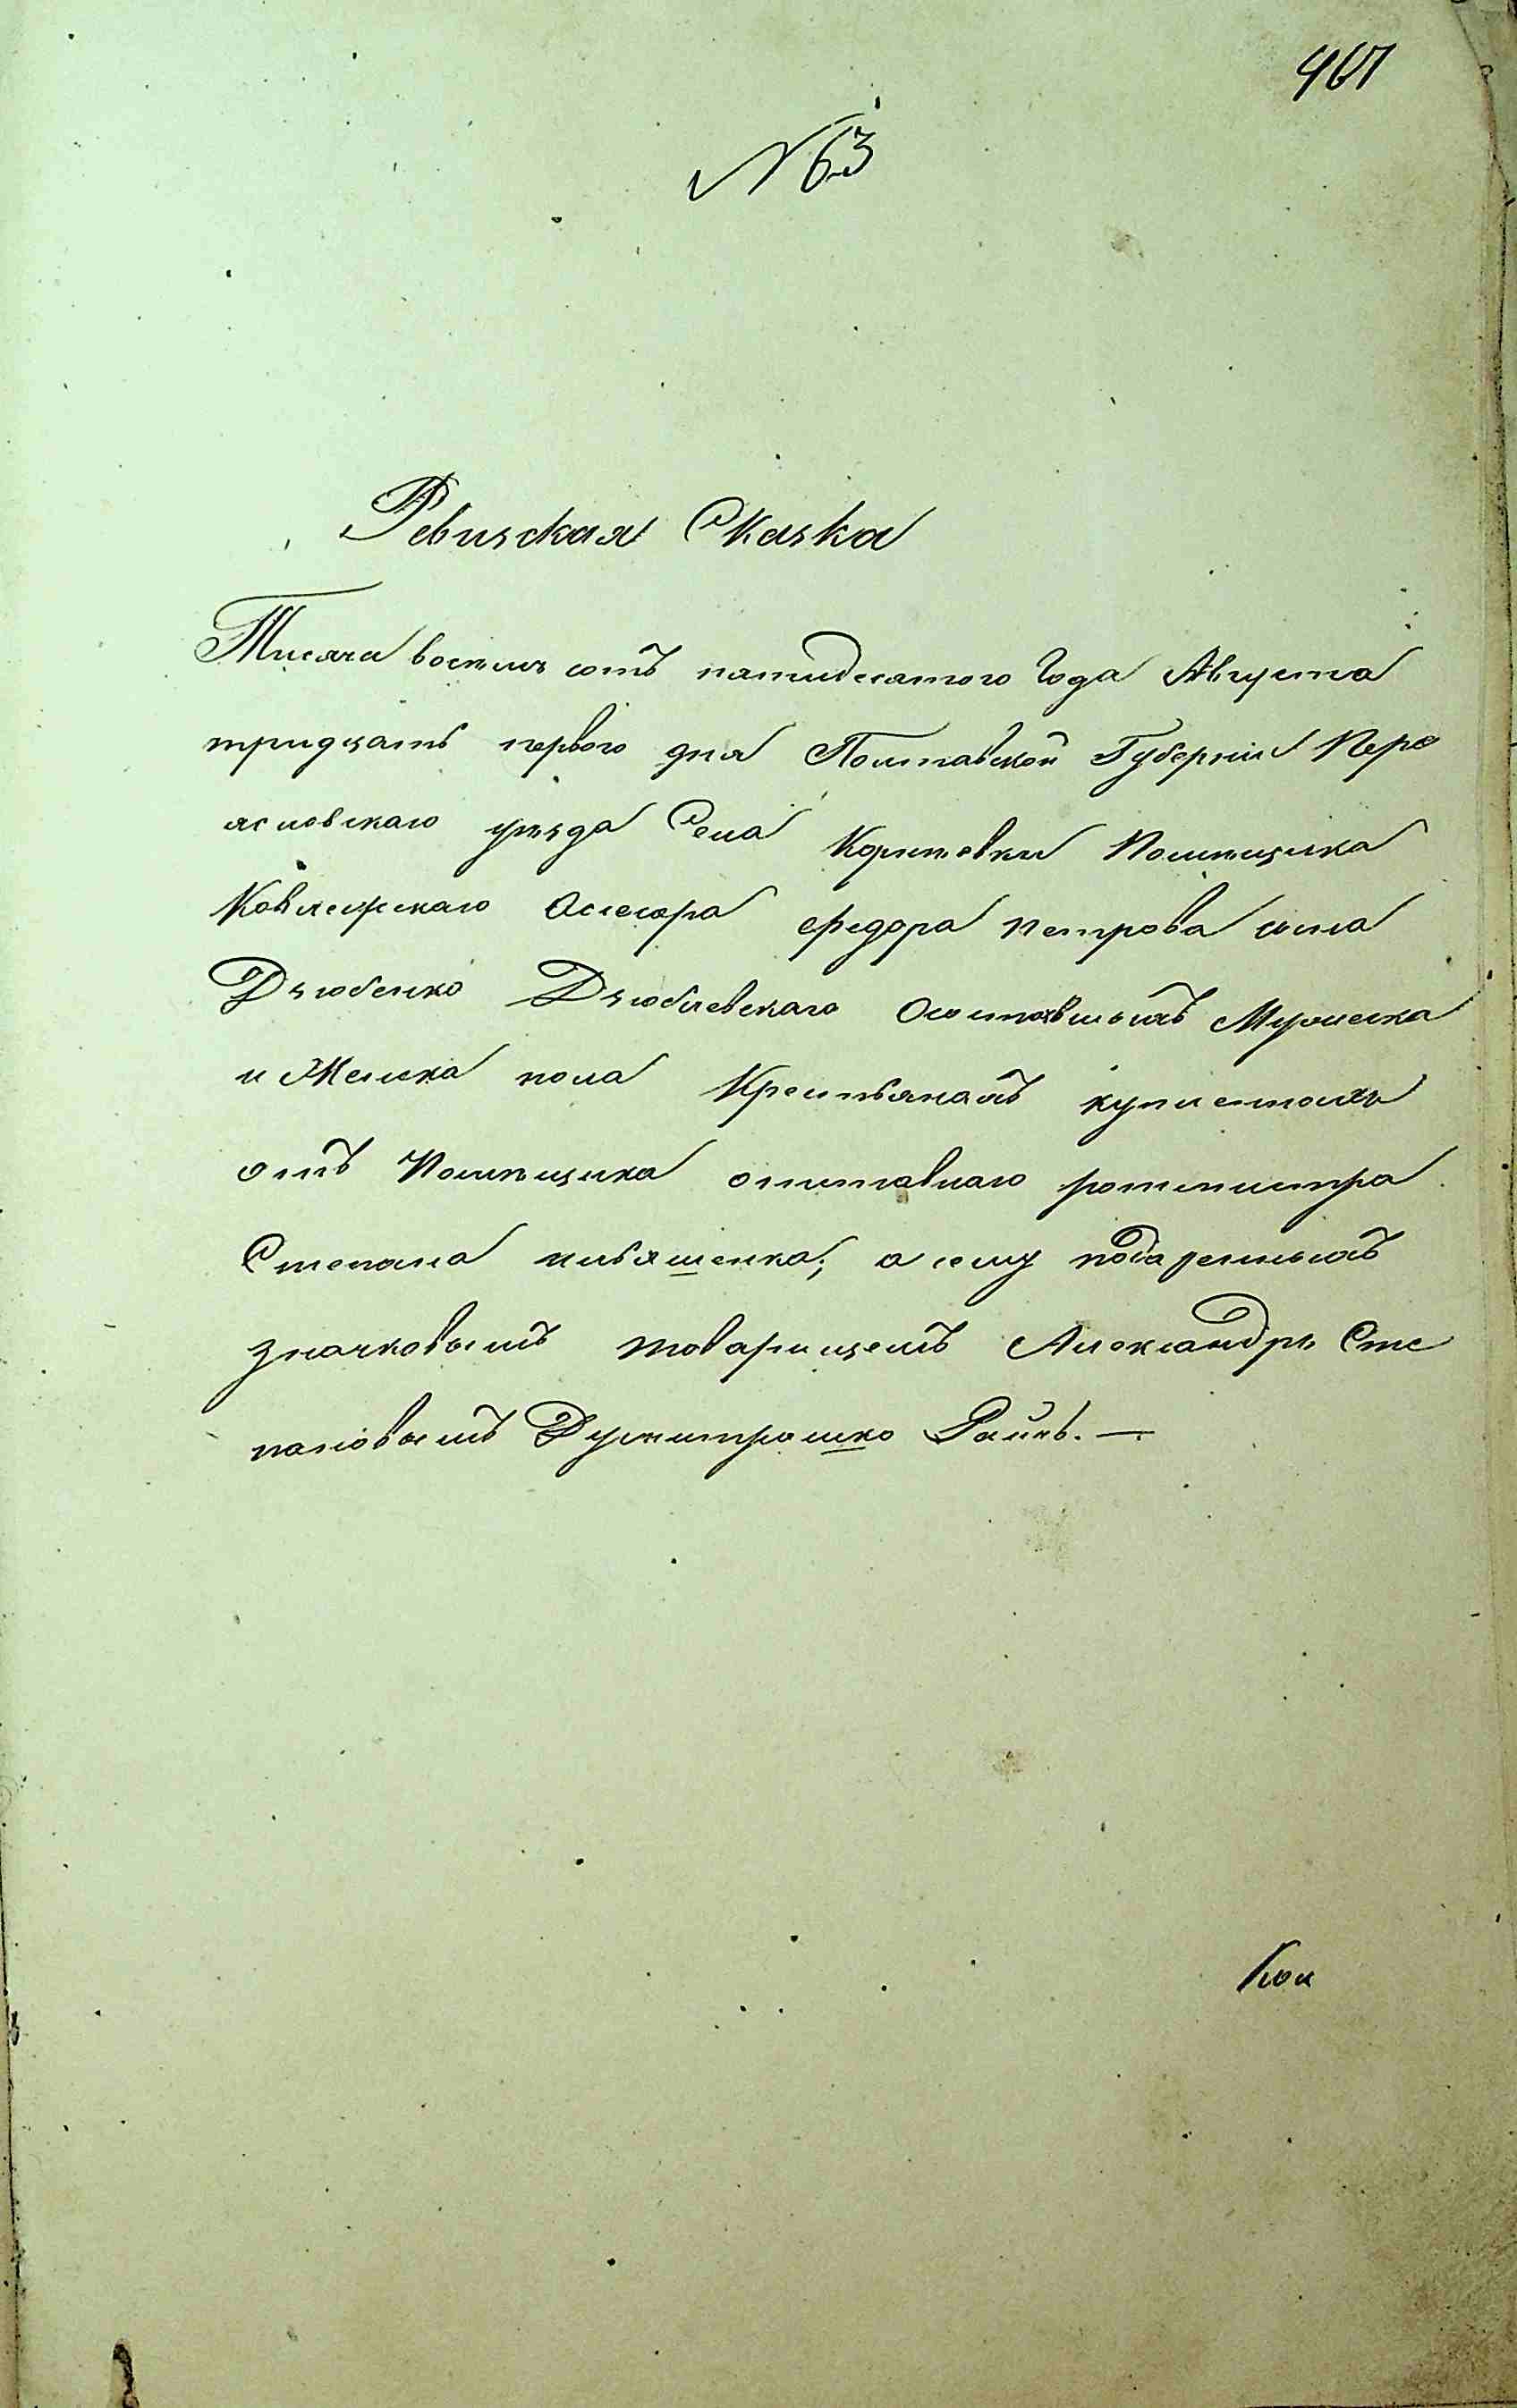 467
N 63
Ревизская Сказка
Тисяча восемь сотъ пятидесятого Года Августа
тридцать первого дня Полтавской Губернии Пере
ясловскаго уѣзда Села Коржевки Помѣщика
Ковлежскаго Асесора Федора Петрова сына
Дзюбенко Дзюблевскаго О состоявшыхъ Мужеска
и Женска пола Крестьянахъ купленныхъ
отъ Помѣщика отставнаго ротмистра
Степана Ильяшенка; а сему подаренныхъ
значковымъ товарищемъ Александръ Сте
пановымъ Думитрашко Райчъ. —